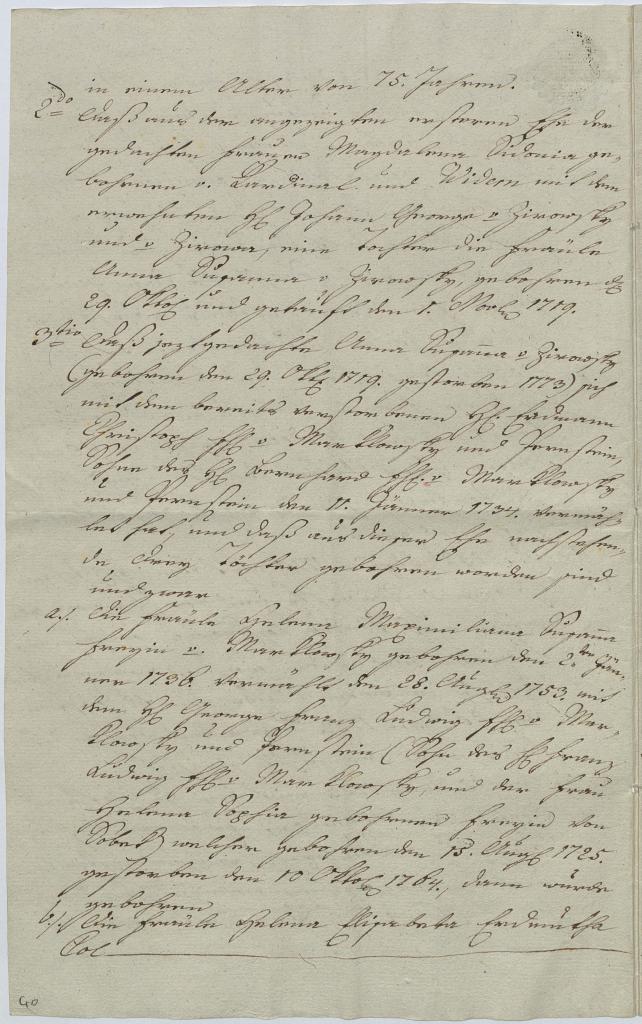 in einem Alter von 75. Jahren.
2do daß aus der angezeigten ersteren Ehe der
gedachten Frauen Magdalena Sidonia ge-
bohrnen v. Kardinal und Widern mit dem
erwehnten H. Johann George v Zirowsky
und v Zirowa, eine Tochter die Fräule
Anna Susanna v Zirowsky, gebohren d
29. Oktob und getauft den 1. Novb 1719.
3tio daß jeztgedachte Anna Susanna v Zirowsky
(gebohren den 29. Oktb 1719. gestorben 1773) sich
mit dem bereits verstorbenen H. Erdmann
Christoph Fhh v Marklowsky und Pernstein,
Sohn des H Bernhard Fhh. v Marklowsky
und Pernstein den 11. Jänner 1734. vermäh-
let hat, und daß aus dieser Ehe nachstehen-
de drey Töchter gebohren worden sind
und zwar
a./. die Fräule Helena Maximiliana Susanna
Freyin v. Marklowsky gebohren den 2ten Jän-
ner 1736. vermählt den 28. Augb 1753. mit
dem H George Franz Ludwig Fhh v Mar-
klowsky und Pernstein (Sohn des H Franz
Ludwig Fhh v Marklowsky, und der Frau
Helena Sophia gebohrnen Freyin von
Sobek) welcher gebohren den 15. Augb 1725.
gestorben den 10 Oktob 1764., dann wurde
gebohren
b./. die Fräule Helena Elisabeta Erdmutha
40